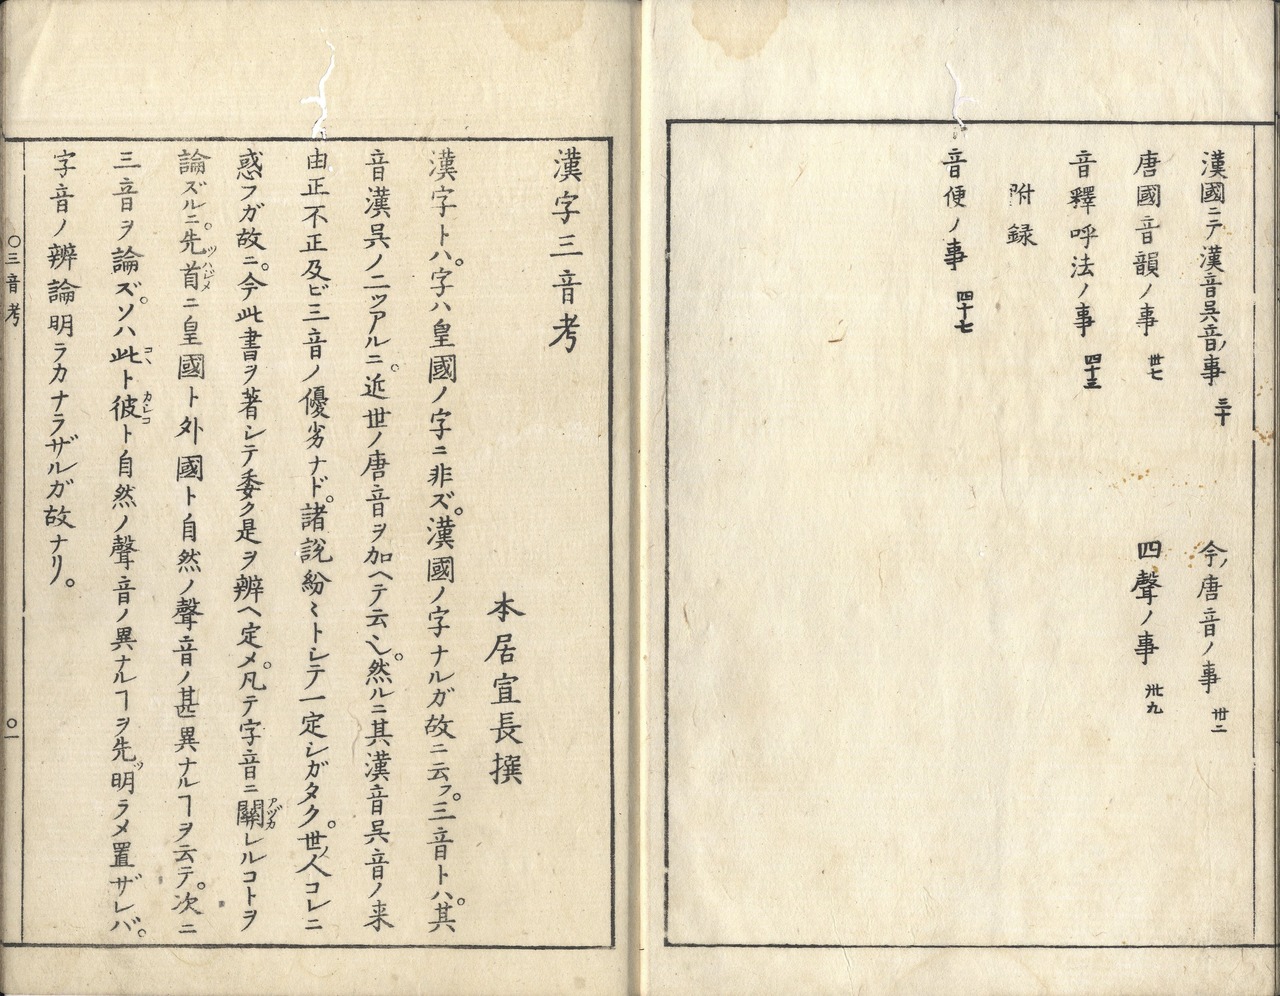 漢國ニテ漢音呉音ノ事 三十
今ノ唐音ノ事 卅二
唐國音韻ノ事 卅七
四聲ノ事 卅九
音釋呼法ノ事 四十三
附録
音便ノ事 四十七
漢字三音考
本居宣長撰
漢字トハ。字ハ皇國ノ字ニ非ズ。漢國ノ字ナルガ故ニ云フ。三音トハ。其
音漢呉ノ二ツアルニ。近世ノ唐音ヲ加ヘテ云ヘリ。然ルニ其漢音呉音ノ来
由正不正及ビ三音ノ優劣ナド。諸説紛〻トシテ一定シガタク。世ノ人コレニ
惑フガ故ニ。今此書ヲ著シテ委ク是ヲ辨ヘ定メ。凡テ字音ニ關アヅカレルコトヲ
論ズルニ。先ヅ首ハジメニ皇國ト外國ト自然ノ聲音ノ甚異ナルヿヲ云テ。次ニ
三音ヲ論ズ。ソハ此コヽト彼カシコト自然ノ聲音ノ異ナルヿヲ先ヅ明ラメ置ザレバ。
字音ノ辨論明ラカナラザルガ故ナリ。
〇三音考
〇一